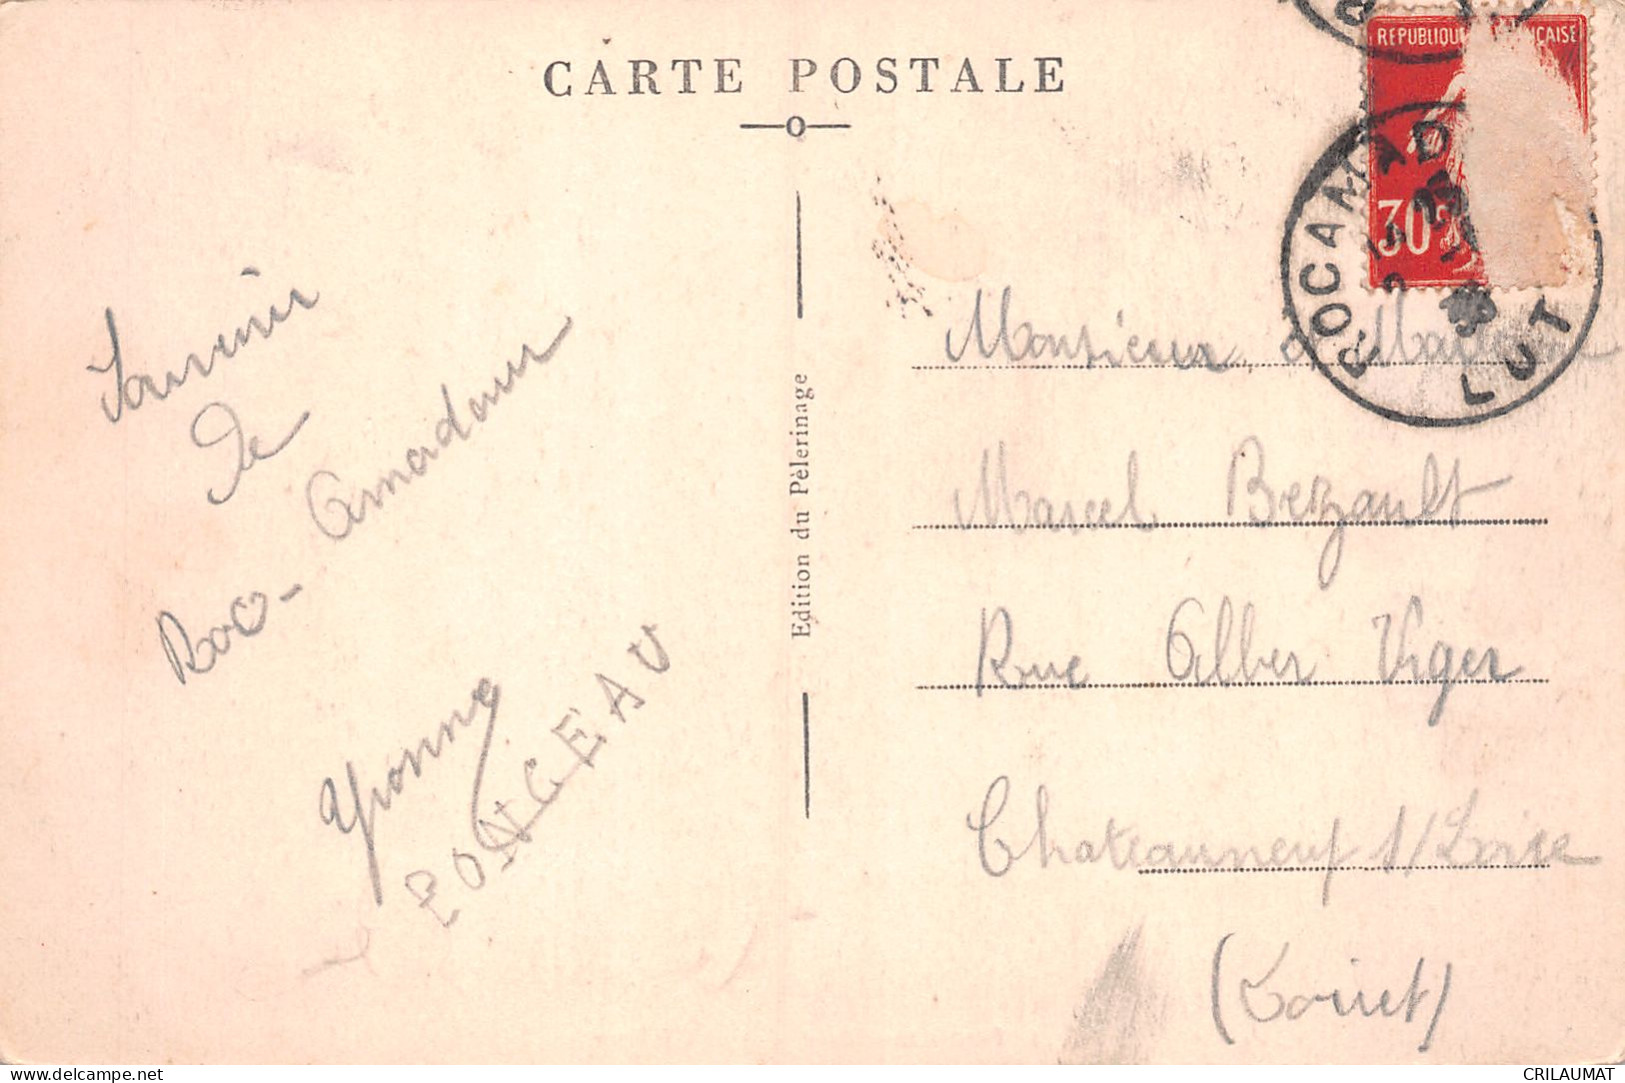 CARTE POSTALE
REPUBLIQUE FRANÇAISE
30 c
ROCAMAD
LOT
Souvenir
de
Roc-Amadour
Yvonne
PONCEAU
Edition du Pèlerinage
Monsieur &
Marcel Bezault
Rue Alber Viger
Chateauneuf s/Loire
(Loiret)
CRILAUMAT